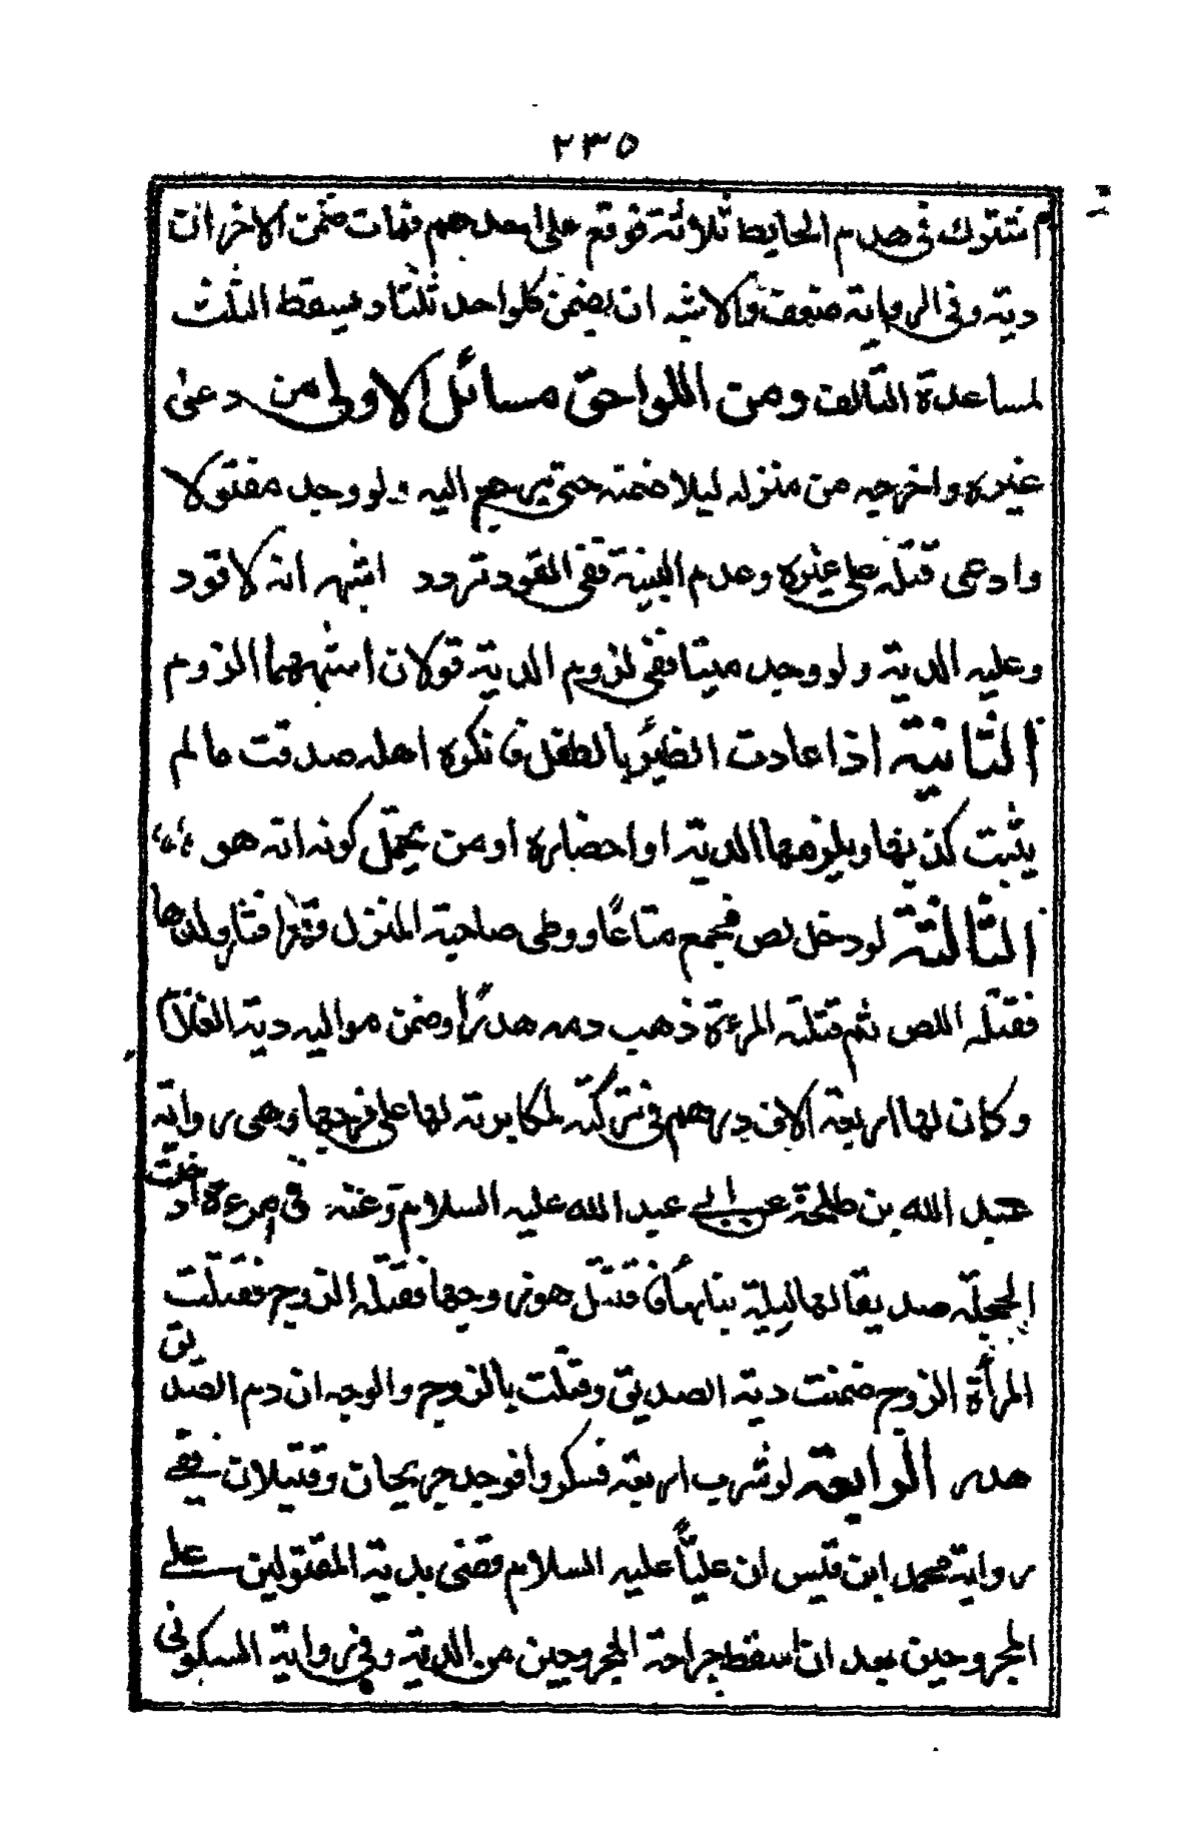 ٢٣٥
اشتركوا في هدم الحايط ثلاثة فوقع على احدهم فمات ضمن الاخران
ديته وفي الرواية ضعف والاشبه ان يضمن كلواحد ثلثا ويسقط الثلث
لمساعدة التالف ومن اللواحق مسائل الاولى من دعى
غيره واخرجه من منزله ليلا ضمنه حتى يرجع اليه ولو وجد مقتولا
وادعى قتله على غيره وعدم البينة ففي القود تردد اشبهه انه لا قود
وعليه الدية ولو وجد ميتا ففي لزوم الدية قولان اشبههما اللزوم
الثانية اذا عادت الظئر بالطفل فانكره اهله صدقت مالم
يثبت كذبها ويلزمها الدية او احضاره او من يحتمل كونه انه هو
الثالثة لو دخل لص فجمع متاعًا ووطى صاحبة المنزل قهرا فثار ولدها
فقتله اللص ثم قتلته المرءة ذهب دمه هدرًا وضمن مواليه دية الغلام
وكان لها اربعة الاف درهم في تركته لمكابرته لها على فرجها وهي رواية
عبد الله بن طلحة عن ابي عبد الله عليه السلام وعنه في امرءة ادخلت
الحجلة صديقا لها ليلة بنائها فاقتتل هو وزوجها فقتله الزوج فقتلت
المرأة الزوج ضمنت دية الصديق وقتلت بالزوج والوجه ان دم الصديق
هدر الرابعة لو شرب اربعة فسكروا فوجد جريحان وقتيلان ففي
رواية محمد ابن قيس ان عليًّا عليه السلام قضى بدية المقتولين على
المجروحين بعد ان اسقط جراحة المجروحين من الدية وفي رواية السكوني